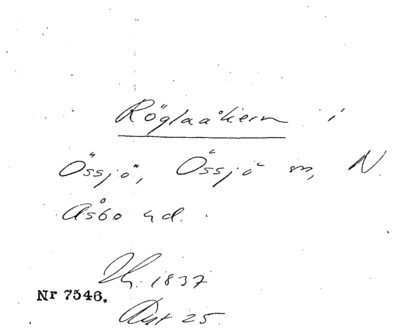 Röglaåkern i
Össjö, Össjö sn, N.
Åsbo hd.
1837
Nr 7546.
Akt 25